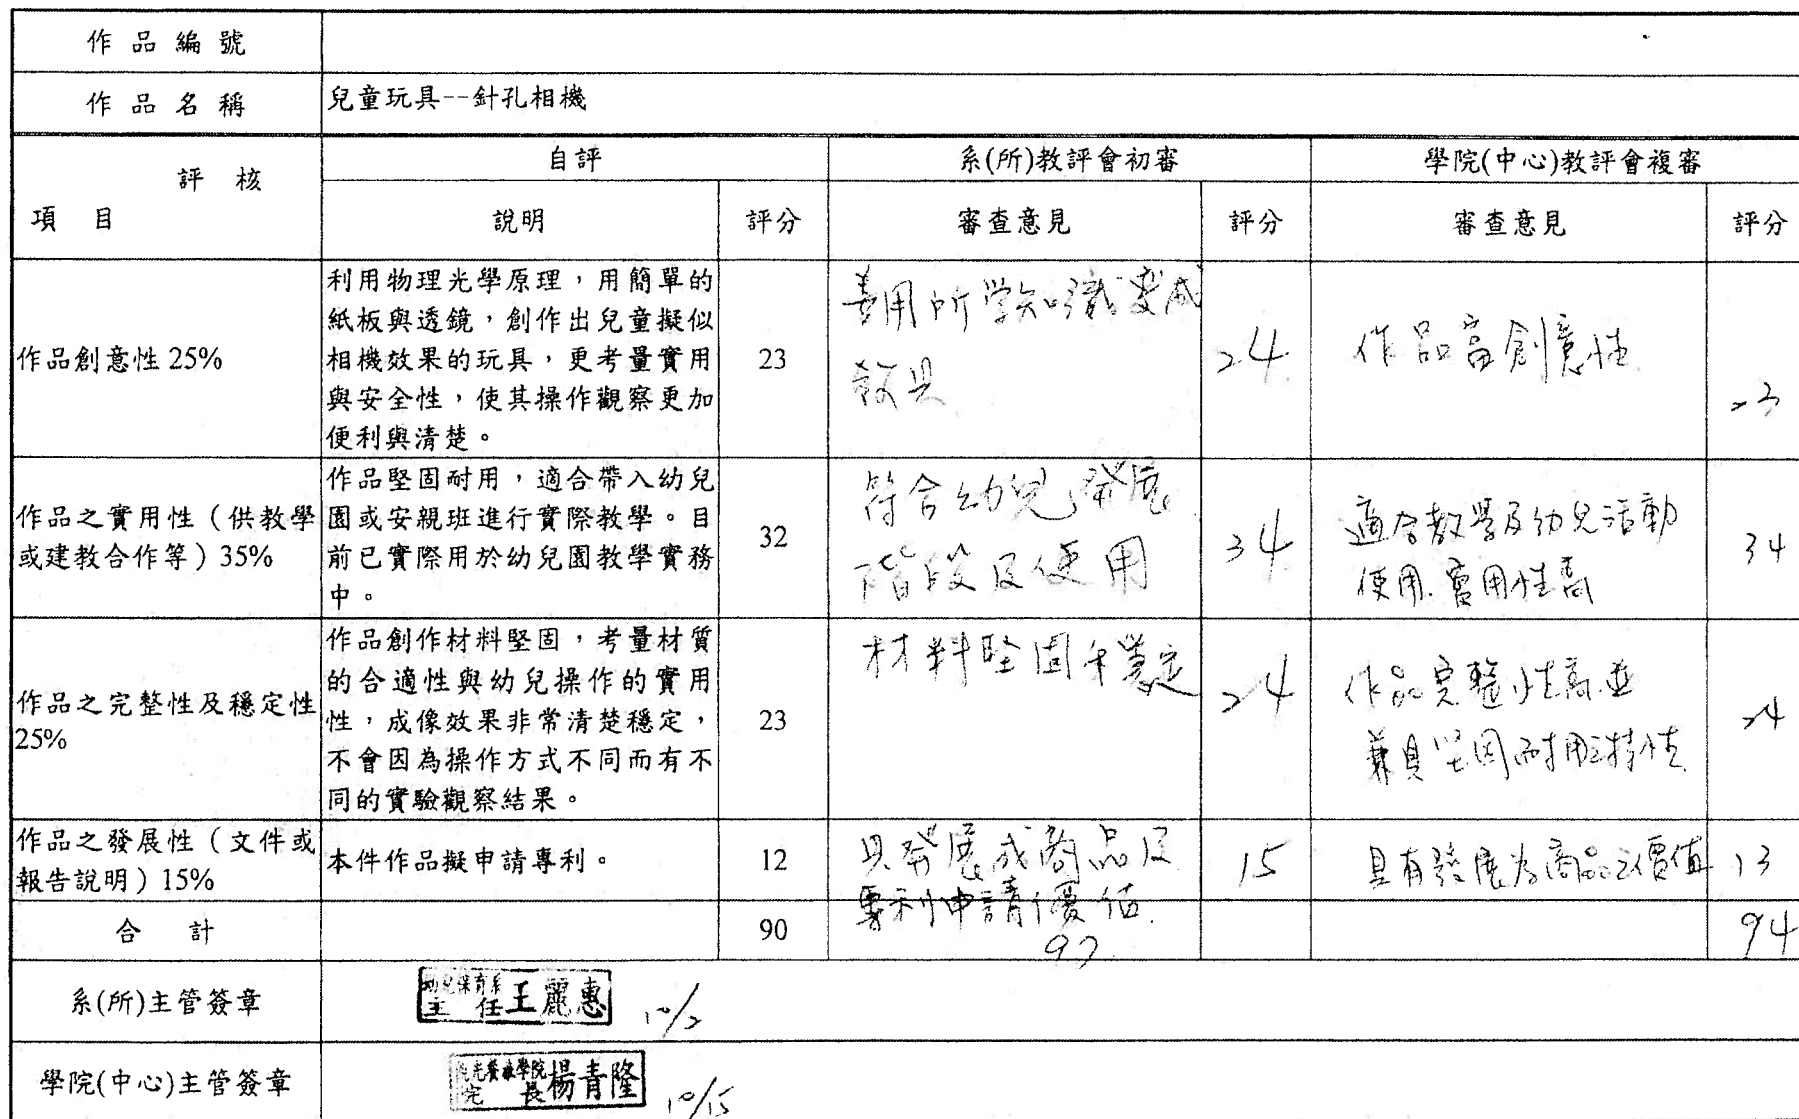 作品編號
作品名稱
兒童玩具--針孔相機
評核
項目
自評
系(所)教評會初審
學院(中心)教評會複審
說明
評分
審查意見
評分
審查意見
評分
作品創意性 25%
利用物理光學原理，用簡單的
紙板與透鏡，創作出兒童擬似
相機效果的玩具，更考量實用
與安全性，使其操作觀察更加
便利與清楚。
23
善用所学知識變成
教具
24
作品富創意性
23
作品之實用性（供教學
或建教合作等）35%
作品堅固耐用，適合帶入幼兒
園或安親班進行實際教學。目
前已實際用於幼兒園教學實務
中。
32
符合幼兒發展
階段及使用
34
適合教學及幼兒活動
使用.實用性高
34
作品之完整性及穩定性
25%
作品創作材料堅固，考量材質
的合適性與幼兒操作的實用
性，成像效果非常清楚穩定，
不會因為操作方式不同而有不
同的實驗觀察結果。
23
材料堅固和穩定
24
作品完整性高並
兼具堅固耐用之特性
24
作品之發展性（文件或
報告說明）15%
本件作品擬申請專利。
12
具發展成商品及
專利申請優值.
15
具有發展為商品之價值
13
合計
90
97
94
系(所)主管簽章
幼兒保育系
主任王麗惠
10/2
學院(中心)主管簽章
院長楊青隆
10/15